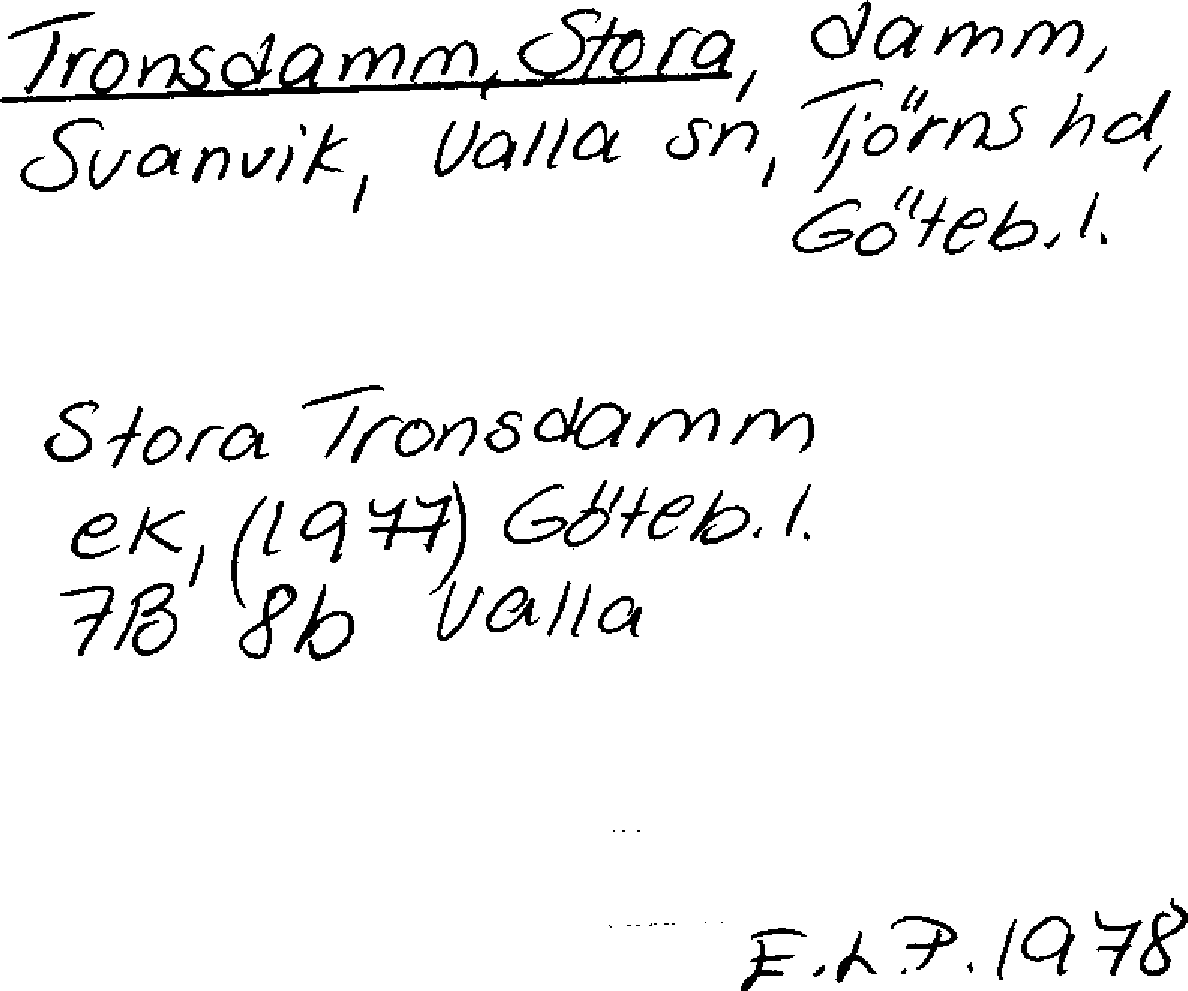 Tronsdamm, Stora, damm,
Svanvik, Valla sn, Tjörns hd,
Göteb. l.
Stora Tronsdamm
ek, (1977) Göteb. l.
7B 8b Valla
E.L.P. 1978